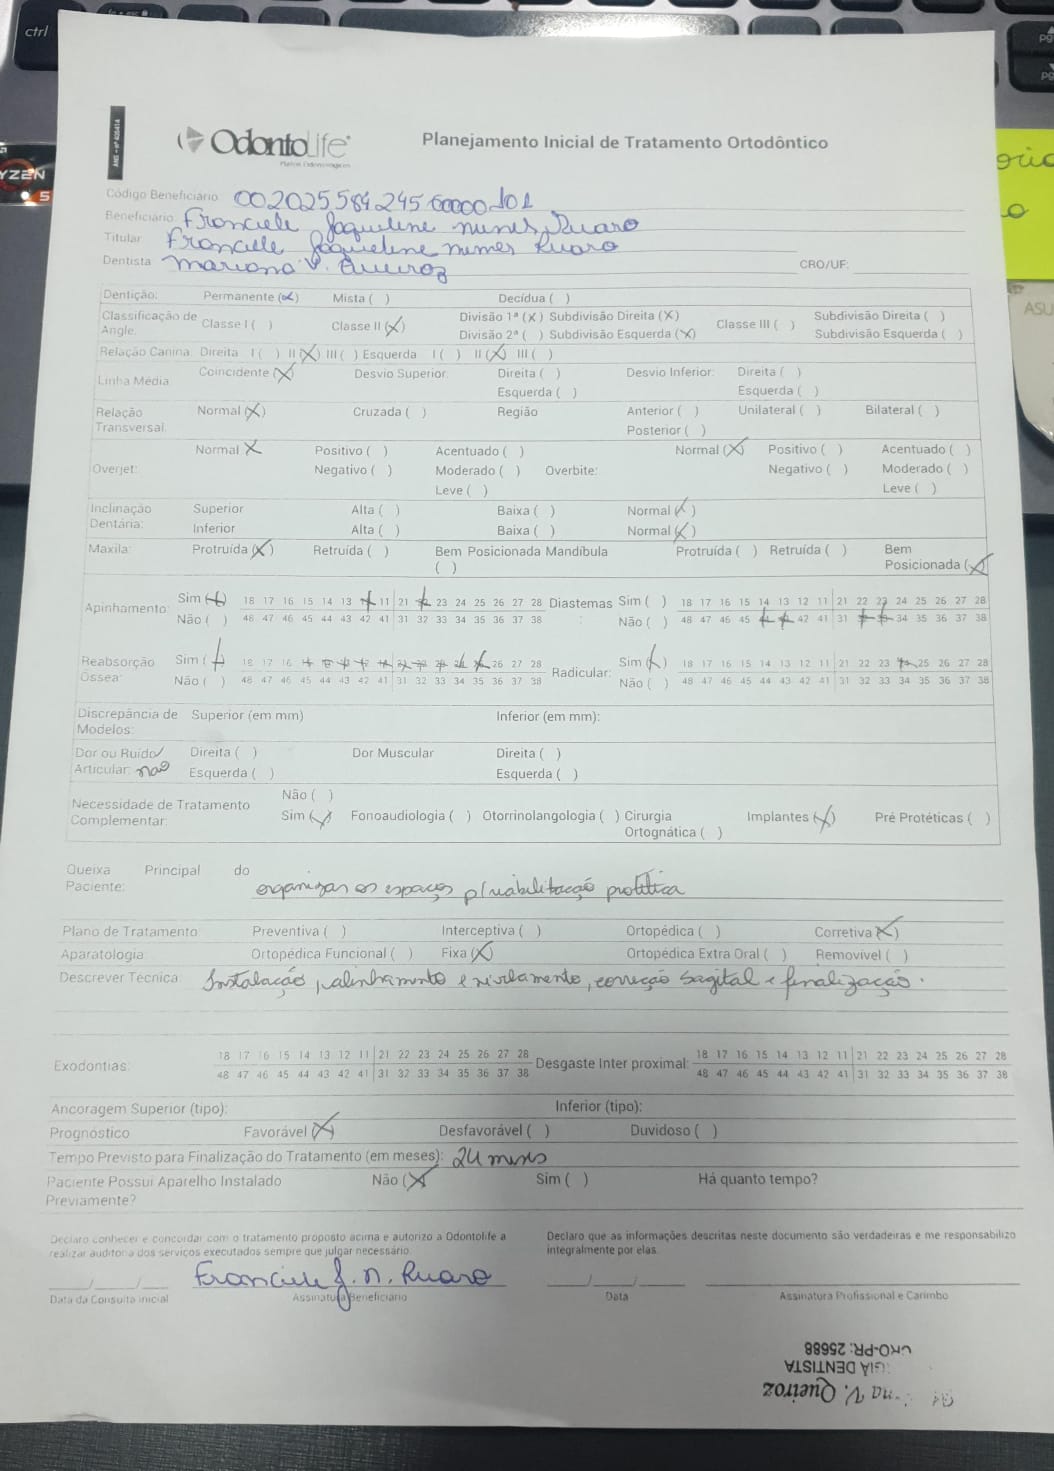 ctrl
fn + esc
YZEN
5
ASU
ANS - nº 405414
OdontoLife
Planos Odontológicos
Planejamento Inicial de Tratamento Ortodôntico
Código Beneficiário: 00202558424560000101
Beneficiário: Franciele Jaqueline nunes Ruaro
Titular Franciele Jaqueline nunes Ruaro
Dentista Mariana V. Queiroz CRO/UF:
Dentição: Permanente (X) Mista ( ) Decídua ( )
Classificação de Angle: Classe I ( ) Classe II (X) Divisão 1ª (X) Subdivisão Direita (X) Classe III ( ) Subdivisão Direita ( )
Divisão 2ª ( ) Subdivisão Esquerda (X) Subdivisão Esquerda ( )
Relação Canina: Direita I ( ) II (X) III ( ) Esquerda I ( ) II (X) III ( )
Linha Média: Coincidente (X) Desvio Superior: Direita ( ) Desvio Inferior: Direita ( )
Esquerda ( ) Esquerda ( )
Relação Transversal: Normal (X) Cruzada ( ) Região Anterior ( ) Unilateral ( ) Bilateral ( )
Posterior ( )
Overjet: Normal X Positivo ( ) Acentuado ( ) Overbite: Normal (X) Positivo ( ) Acentuado ( )
Negativo ( ) Moderado ( ) Negativo ( ) Moderado ( )
Leve ( ) Leve ( )
Inclinação Dentária: Superior Alta ( ) Baixa ( ) Normal (X)
Inferior Alta ( ) Baixa ( ) Normal (X)
Maxila: Protruída (X) Retruída ( ) Bem Posicionada ( ) Mandíbula Protruída ( ) Retruída ( ) Bem Posicionada (X)
Apinhamento: Sim (X) 18 17 16 15 14 13 11 21 23 24 25 26 27 28 Diastemas: Sim ( ) 18 17 16 15 14 13 12 11 21 22 23 24 25 26 27 28
Não ( ) 48 47 46 45 44 43 42 41 31 32 33 34 35 36 37 38 Não ( ) 48 47 46 45 42 41 31 34 35 36 37 38
Reabsorção Óssea: Sim (X) 18 17 16 26 27 28 Radicular: Sim (X) 18 17 16 15 14 13 12 11 21 22 23 25 26 27 28
Não ( ) 48 47 46 45 44 43 42 41 31 32 33 34 35 36 37 38 Não ( ) 48 47 46 45 44 43 42 41 31 32 33 34 35 36 37 38
Discrepância de Modelos: Superior (em mm) Inferior (em mm):
Dor ou Ruído Articular: não Direita ( ) Dor Muscular Direita ( )
Esquerda ( ) Esquerda ( )
Necessidade de Tratamento Complementar: Não ( )
Sim (X) Fonoaudiologia ( ) Otorrinolangologia ( ) Cirurgia Ortognática ( ) Implantes (X) Pré Protéticas ( )
Queixa Principal do Paciente: organizar os espaços p/ reabilitação protética
Plano de Tratamento Preventiva ( ) Interceptiva ( ) Ortopédica ( ) Corretiva (X)
Aparatologia: Ortopédica Funcional ( ) Fixa (X) Ortopédica Extra Oral ( ) Removível ( )
Descrever Técnica: Instalação, alinhamento e nivelamento, correção sagital e finalização.
Exodontias: 18 17 16 15 14 13 12 11 21 22 23 24 25 26 27 28 Desgaste Inter proximal: 18 17 16 15 14 13 12 11 21 22 23 24 25 26 27 28
48 47 46 45 44 43 42 41 31 32 33 34 35 36 37 38 48 47 46 45 44 43 42 41 31 32 33 34 35 36 37 38
Ancoragem Superior (tipo): Inferior (tipo):
Prognóstico Favorável (X) Desfavorável ( ) Duvidoso ( )
Tempo Previsto para Finalização do Tratamento (em meses): 24 meses
Paciente Possui Aparelho Instalado Previamente? Não (X) Sim ( ) Há quanto tempo?
Declaro conhecer e concordar com o tratamento proposto acima e autorizo a Odontolife a
realizar auditoria dos serviços executados sempre que julgar necessário.
Declaro que as informações descritas neste documento são verdadeiras e me responsabilizo
integralmente por elas.
__/__/__ Franciele J. N. Ruaro __/__/__
Data da Consulta inicial Assinatura Beneficiário Data Assinatura Profissional e Carimbo
na V. Queiroz
GIÃ DENTISTA
CRO-PR: 25688